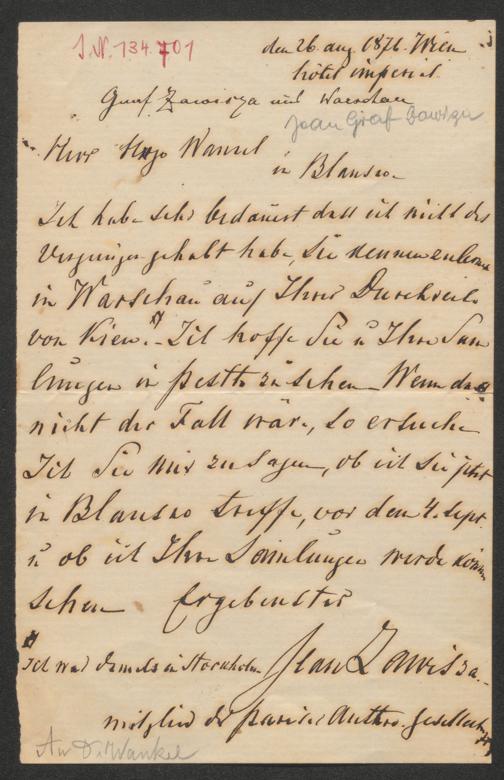 I.N. 134.701
den 26 aug 1876. Wien
hôtel imperial
Graf Zawisza aus Warschau
Jean Graf Zawisza
Herr Hugo Wankel
in Blansko
Ich habe sehr bedauert dass ich nicht das
Vergnügen gehabt habe, Sie kennen zu lernen
in Warschau auf Ihrer Durchreise
von Kiew. # - Ich hoffe Sie u Ihre Sam
lungen in Pesth zu sehen - Wenn das
nicht der Fall wäre, so ersuche
Ich Sie mir zu sagen, ob ich Sie jetzt
in Blansko treffe, vor dem 4. Sept.
u ob ich Ihre Samlungen werde können
sehen Ergebenster
# Ich war damals in Stockholm Jean Zawisza.
mitglied der pariser Anthro. Gesellsch
An Dr Wankel